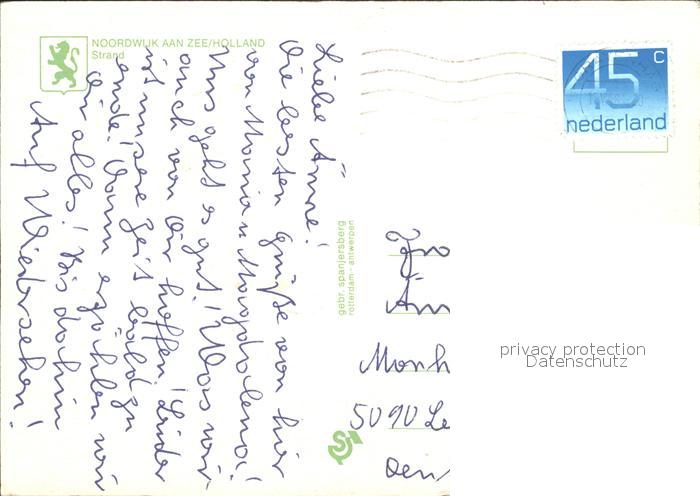 NOORDWIJK AAN ZEE/HOLLAND
Strand
Liebe Änne!
Die besten Grüße von hier
von Maria u Magdalena!
Uns geht es gut! Was wir
auch von Dir hoffen! Leider
ist unsere Zeit bald zu
ende! Dann erzählen wir
Dir alles! Bis dahin
Auf Wiedersehen!
gebr. spanjersberg
rotterdam - antwerpen
45 c
nederland
Än
Monh
5090 Le
privacy protection
Datenschutz